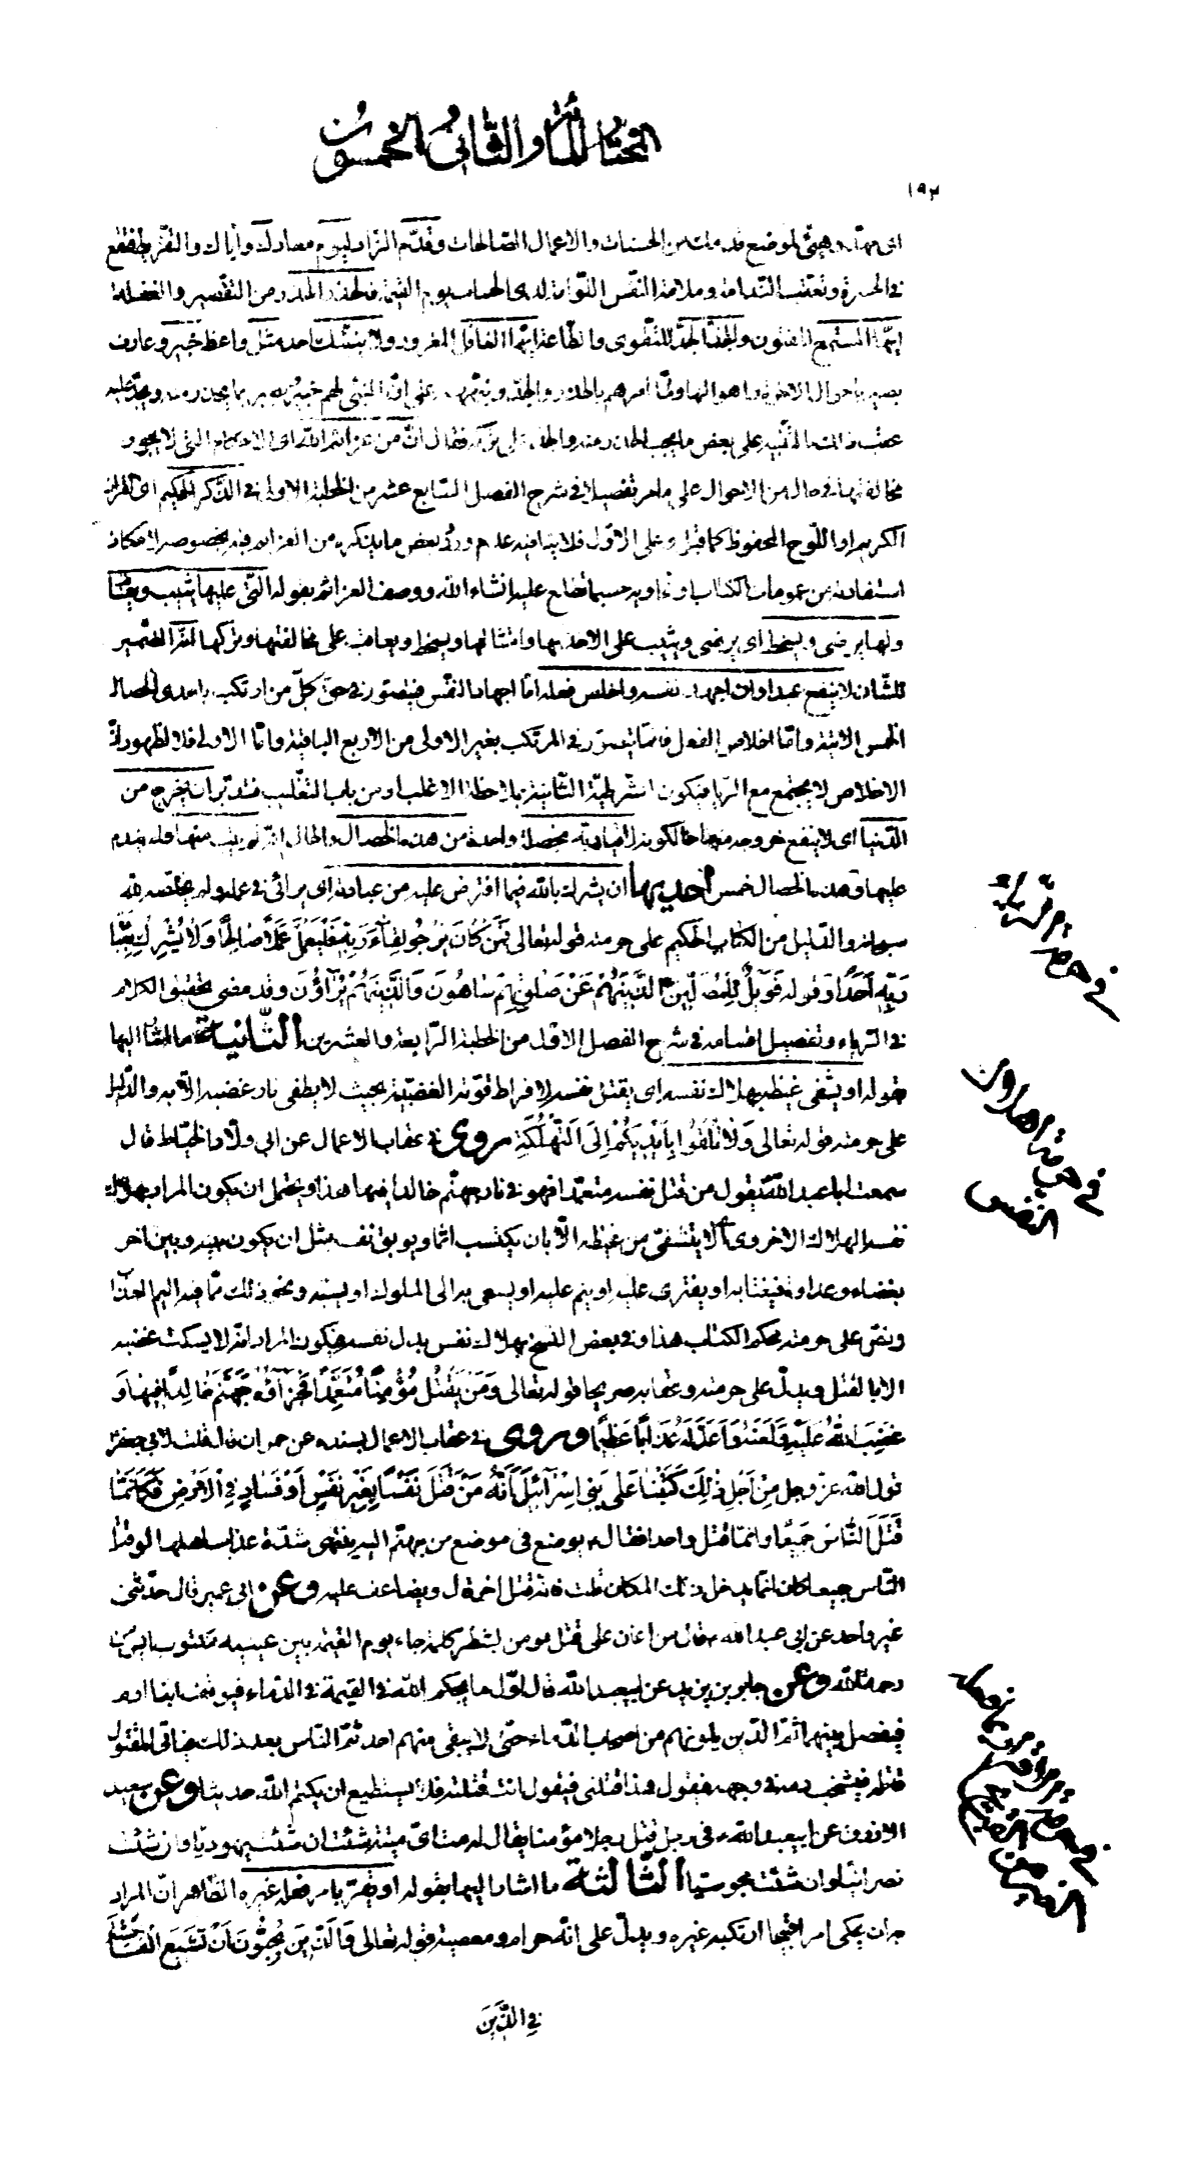 المختار المأة والثاني والخمسون
١٩٢
اى مهّد وهيّئ لموضع قدمك من الحسنات والاعمال الصّالحات وقدّم الزّاد ليوم معادك وايّاك والتّفريط فتقع
في الحسرة وتعقّب النّدامة وملامة النّفس اللّوامة لدى الحساب يوم القيمة فالحذر الحذر من التقصير والغفلة
ايّها المستمع المفتون والجدّ الجدّ للتّقوى والطّاعة ايّها الغافل المغرور ولا ينبّئك احد مثل واعظ خبير وعارف
بصير باحوال الاخرة واهوالها ولمّا امرهم بالحذر والجدّ ونبّههم على انّ المنبّئ لهم خبير بصير بما يحذر منه ويجدّ عليه
عقّب ذلك بالتّنبيه على بعض ما يجب الحذر منه والجدّ على تركه فقال انّ من عزائم اللّه اى الاحكام التي لا يجوز
مخالفتها في حال من الاحوال على ما مر تفصيلا في شرح الفصل السّابع عشر من الخطبة الاولى في الذّكر الحكيم اى القران
الكريم او اللّوح المحفوظ كما قيل وعلى الاوّل فلا ينافيه عدم ورود بعض ما يذكره من العزائم فيه بخصوصه لامكان
استفادته من عمومات الكتاب او فحاويه حسبما تطلع عليه انشاء اللّه ووصف العزائم بقوله التي عليها يثيب ويعاقب
ولها يرضى ويسخط اى يرضى ويثيب على الاخذ بها وامتثالها ويسخط ويعاقب على مخالفتها وتركها انّه الضّمير
للشّان لا ينفع عبدا وان اجهد نفسه واخلص فعله امّا اجهاد النفس فيتصوّر في حقّ كلّ من ارتكب باحدى الخصال
الخمس الاتية وامّا اخلاص الفعل فانّما يتصوّر في المرتكب بغير الاولى من الاربع الباقية وامّا الاولى فلا لظهور انّ
الاخلاص لا يجتمع مع الرّيا فيكون الشّرطيّة الثّانية بملاحظة الاغلب او من باب التغليب فتدبّر ان يخرج من
الدّنيا اى لا ينفع خروجه منها حالكونه لاقيا ربّه بخصلة واحدة من هذه الخصال والحال انّه لم يتب منها ولم يندم
عليها وهذه الخصال خمس احديها ان يشرك باللّه فيما افترض عليه من عبادته اى يرائى في عمله ولم يخلصه للّه
سبحانه والدّليل من الكتاب الحكيم على حرمته قوله تعالى فَمَنْ كَانَ يَرْجُو لِقَاءَ رَبِّهِ فَلْيَعْمَلْ عَمَلًا صَالِحًا وَلَا يُشْرِكْ بِعِبَادَةِ
رَبِّهِ أَحَدًا وقوله فَوَيْلٌ لِلْمُصَلِّينَ الَّذِينَ هُمْ عَنْ صَلَوتِهِمْ سَاهُونَ وَالَّذِينَ هُمْ يُرَاؤُنَ وقد مضى تحقيق الكلام
في الرّياء وتفصيل اقسامه في شرح الفصل الاوّل من الخطبة الرّابعة والعشرين الثّانية ما اشار اليها
بقوله او يشفى غيظه بهلاك نفسه اى يقتل نفسه لافراط قوّته الغضبيّة بحيث لا يطفى نار غضبه الّا به والدّليل
على حرمته قوله تعالى وَلَا تُلْقُوا بِأَيْدِيكُمْ إِلَى التَّهْلُكَةِ وروى في عقاب الاعمال عن ابى ولّاد الحنّاط قال
سمعت ابا عبد اللّه يقول من قتل نفسه متعمّدا فهو في نار جهنّم خالدا فيها هذا ويحتمل ان يكون المراد بهلاك
نفسه الهلاك الاخروى اى لا يتشفّى من غيظه الّا بان يكتسب اثما ويوبق نفسه مثل ان يكون بينه وبين اخر
بغضاء وعداوة فيغتابه او يفترى عليه او ينم عليه او يسعى به الى الملوك او يسبّه ونحو ذلك ممّا فيه اليم العذاب
ونصّ على حرمته محكم الكتاب هذا وفي بعض النّسخ بهلاك نفس بدل نفسه فيكون المراد انّه لا يسكت غضبه
الا بالقتل ويدلّ على حرمته وعقابه صريحا قوله تعالى وَمَنْ يَقْتُلْ مُؤْمِنًا مُتَعَمِّدًا فَجَزَاؤُهُ جَهَنَّمُ خَالِدًا فِيهَا وَ
غَضِبَ اللَّهُ عَلَيْهِ وَلَعَنَهُ وَأَعَدَّ لَهُ عَذَابًا عَظِيمًا وروى في عقاب الاعمال بسنده عن حمران قال قلت لابي جعفر
قول اللّه عزّ وجل مِنْ أَجْلِ ذَلِكَ كَتَبْنَا عَلَى بَنِي إِسْرَائِيلَ أَنَّهُ مَنْ قَتَلَ نَفْسًا بِغَيْرِ نَفْسٍ أَوْ فَسَادٍ فِي الْأَرْضِ فَكَأَنَّمَا
قَتَلَ النَّاسَ جَمِيعًا وانّما قتل واحدا فقال يوضع في موضع من جهنّم اليه ينتهى شدّة عذاب اهلها لو قتل
النّاس جميعا كان انّما يدخل ذلك المكان قلت فانّه قتل اخر قال يضاعف عليه وعن ابى عمير قال حدّثنى
غير واحد عن ابى عبد اللّه قال من اعان على قتل مومن بشطر كلمة جاء يوم القيمة بين عينيه مكتوب ايس من
رحمة اللّه وعن جابر بن يزيد عن ابيعبد اللّه قال اوّل ما يحكم اللّه في القيمة في الدّماء فيوقف ابنا ادم
فيفصل بينهما ثمّ الّذين يلونهم من اصحاب الدّماء حتّى لا يبقى منهم احد ثمّ النّاس بعد ذلك فياتى المقتول
قاتله فيشخب دمه في وجهه فيقول هذا قتلنى فيقول انت قتلته فلا يستطيع ان يكتم اللّه حديثا وعن سعيد
الازرق عن ابيعبد اللّه في رجل قتل رجلا مؤمنا يقال له مت اىّ ميتة شئت ان شئت يهوديّا وان شئت
نصرانيّا وان شئت مجوسيّا الثّالثة ما اشار اليها بقوله او يقرّ بامر فعله غيره الظّاهر انّ المراد
به ان يحكى امرا قبيحا ارتكبه غيره ويدلّ على انّه حرام ومعصية قوله تعالى وَالَّذِينَ يُحِبُّونَ أَنْ تَشِيعَ الْفَاحِشَةُ
فِي الَّذِينَ
في حرمة الرياء
في حرمة اهلاك النفس